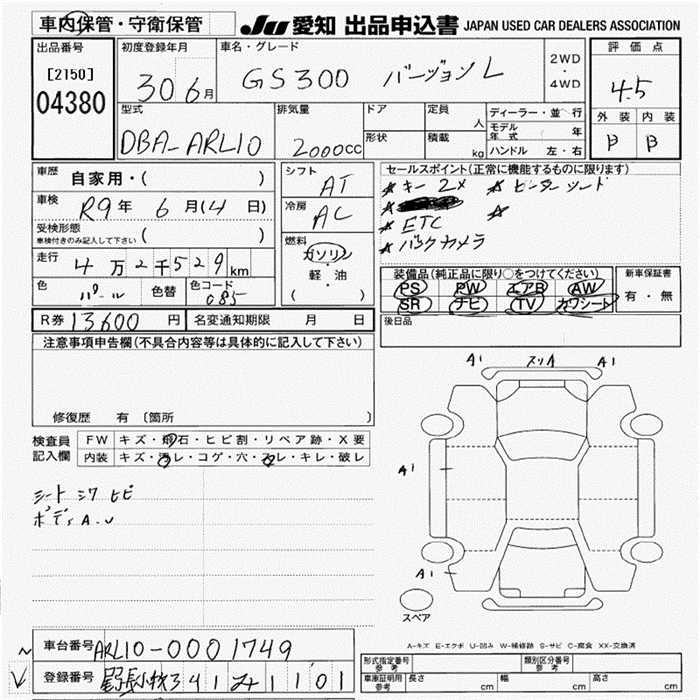 車内保管・守衛保管
JU 愛知 出品申込書 JAPAN USED CAR DEALERS ASSOCIATION
出品番号 初度登録年月 車名・グレード 評価点
[2150] 30 6月 GS300 バージョンL 2WD・4WD 4.5
04380
型式 排気量 ドア 定員 人 ディーラー・並行 外装 内装
DBA-ARL10 2000cc 形状 積載 kg モデル年式 年 B B
ハンドル 左・右
車歴 自家用・( ) シフト AT セールスポイント(正常に機能するものに限ります)
車検 R9年 6月(4日) 冷房 AC ★キー2×
受検形態 車検付きのみ記入して下さい ( ) ★ETC
走行 4万2千529km 燃料 ガソリン・軽・油 ( ) ★バックカメラ
色 パール 色替 色コード 085 装備品(純正品に限り○をつけてください) 新車保証書
PS PW エアB AW 有・無
SR ナビ TV カワシート
R券 13600円 名変通知期限 月 日 後日品
注意事項申告欄(不具合内容等は具体的に記入して下さい)
修復歴 有 〔箇所
A1 スリA A1
検査員記入欄 FW キズ・飛石・ヒビ割・リペア跡・X要
内装 キズ・汚レ・コゲ・穴・スレ・キレ・破レ
A1
シート シワ ヒビ
ボディA.U
A1
スペア
A-キズ E-エクボ U-凹み W-補修跡 S-サビ C-腐食 XX-交換済
車台番号 ARL10-0001749
登録番号 341 1101
形式指定番号 参考 類別区分番号 参考
車庫証明用 参考 長さ cm 幅 cm 高さ cm